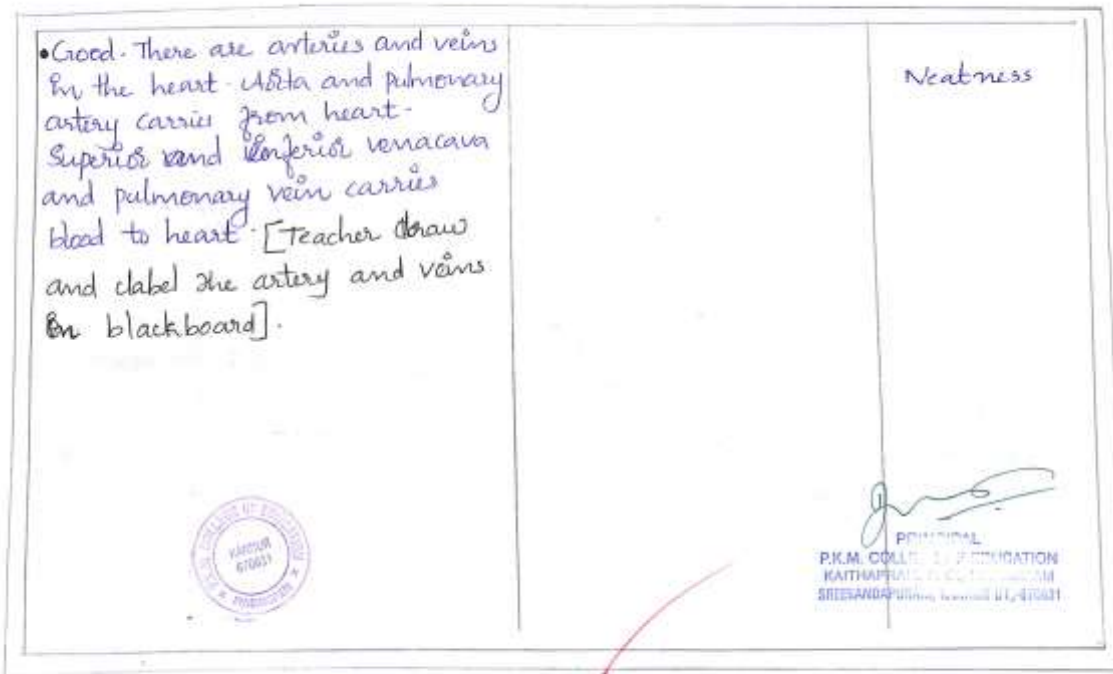 •Good. There are arteries and veins
in the heart. Aorta and pulmonary
artery carries from heart.
Superior and inferior venacava
and pulmonary vein carries
blood to heart. [Teacher draw
and label the artery and veins
in blackboard].
Neatness
COLLEGE OF EDUCATION
KANNUR
670631
PRINCIPAL
P.K.M. COLLEGE OF EDUCATION